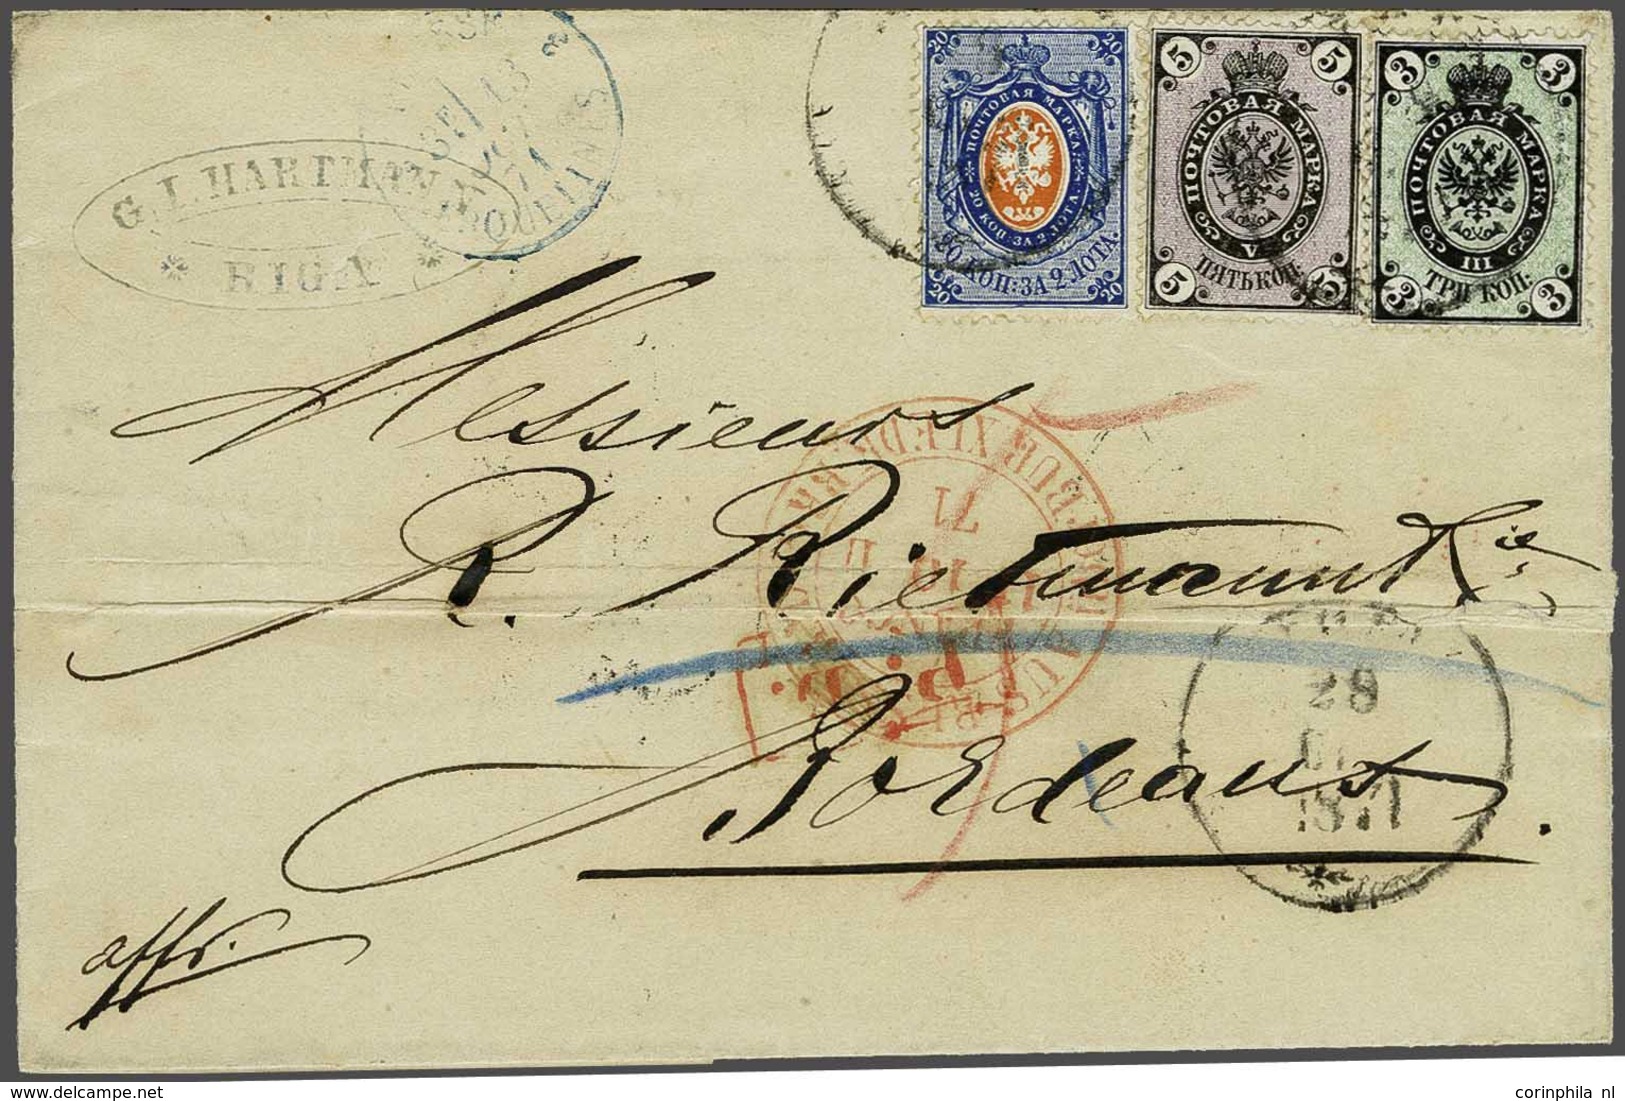 G. I. HARTMANN
RIGA
20 20
ПОЧТОВАЯ МАРКА
20 КОП: ЗА 2 ЛОТА
20 КОП: ЗА 2 ЛОТА.
20 20
5 5
ПОЧТОВАЯ МАРКА
V
ПЯТЬ КОП:
5 5
3 3
ПОЧТОВАЯ МАРКА
III
ТРИ КОП:
3 3
Messieurs
R. Rietmann & Cie
Bordeaux.
affr.
71
P. D.
28
1871
corinphila nl